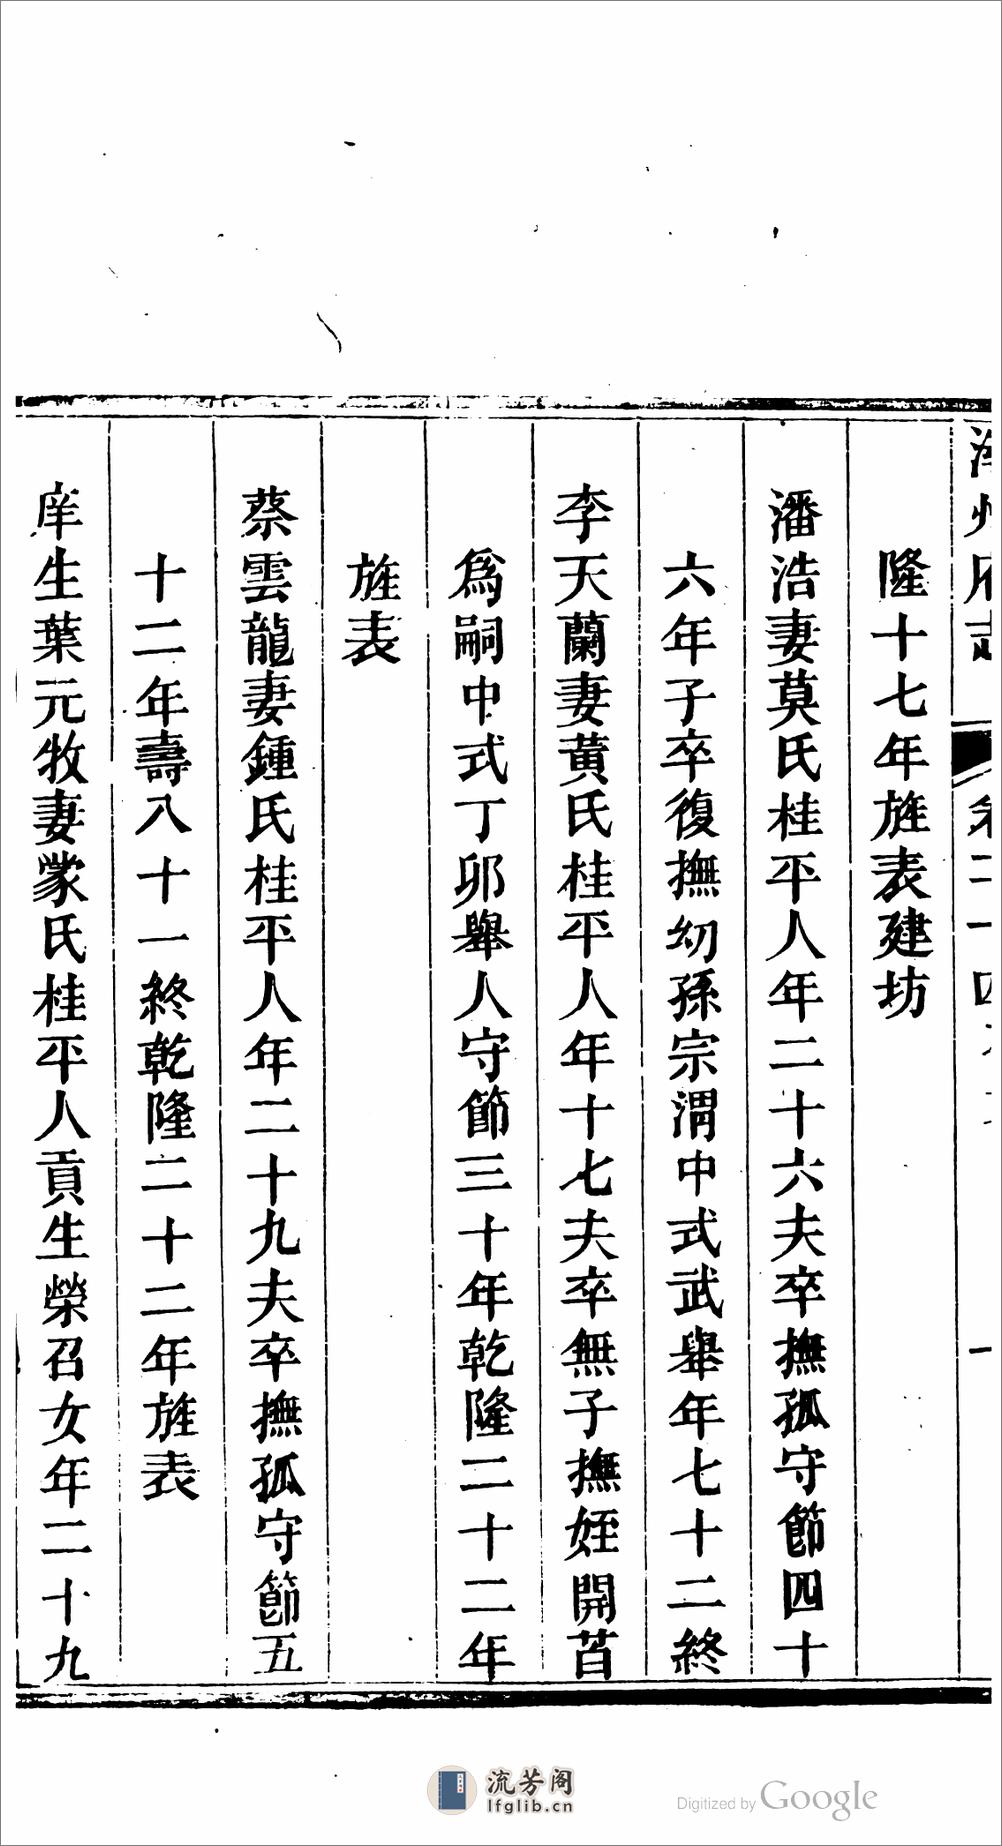 隆十七年旌表建坊
潘浩妻莫氏桂平人年二十六夫卒撫孤守節四十
六年子卒復撫幼孫宗渭中式武舉年七十二終
李天蘭妻黃氏桂平人年十七夫卒無子撫姪開苜
爲嗣中式丁卯舉人守節三十年乾隆二十二年
旌表
蔡雲龍妻鍾氏桂平人年二十九夫卒撫孤守節五
十二年壽八十一終乾隆二十二年旌表
庠生葉元牧妻蒙氏桂平人貢生榮召女年二十九
流芳阁
lfglib.cn
Digitized by Google